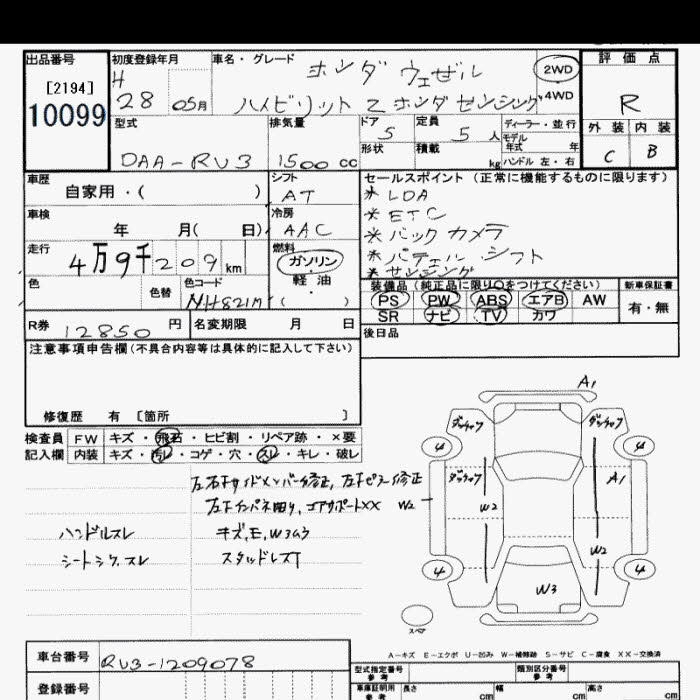 出品番号
初度登録年月
車名・グレード
評価点
[2194]
10099
H
28 05月
ホンダ ヴェゼル
ハイビリット Z ホンダ センシング
2WD
4WD
R
外装 内装
C B
型式
DAA-RU3
排気量
1500 cc
ドア
5
定員
5 人
ディーラー・並行
モデル
年式 年
形状
積載
kg
ハンドル 左・右
車歴
自家用・( )
シフト
AT
セールスポイント(正常に機能するものに限ります)
* LDA
* ETC
* バックカメラ
* パテェル シフト
* センシング
車検
年 月( 日)
冷房
AAC
走行
4万9千209km
燃料
ガソリン
・
軽油
・
( )
色
色替
色コード
NH821M
装備品(純正品に限り○をつけてください)
新車保証書
PS PW ABS エアB AW
SR ナビ TV カワ
有・無
R券
12850 円
名変期限 月 日
後日品
注意事項申告欄(不具合内容等は具体的に記入して下さい)
修復歴 有 [箇所 ]
検査員
記入欄
FW キズ・飛石・ヒビ割・リペア跡・×要
内装 キズ・汚レ・コゲ・穴・スレ・キレ・破レ
左右下サイドメンバー修正,
キズ,E,W3ωう
スタッドレスT
ハンドルスレ
シートシワ.スレ
A1
4
4
A1
W2
W2
W2
4
4
W3
スペア
A-キズ E-エクボ U-凹み W-補修跡 S-サビ C-腐食 XX-交換済
車台番号
RU3-1209078
登録番号
型式指定番号
参考
類別区分番号
参考
車庫証明用
参考
長さ cm
幅 cm
高さ cm